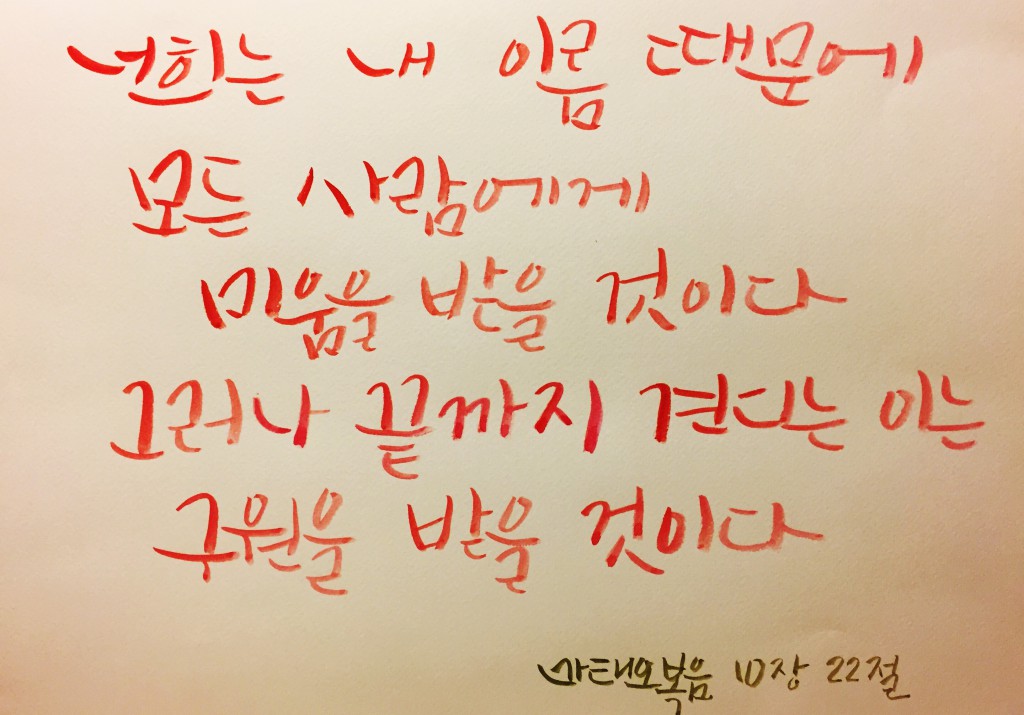 너희는 내 이름 때문에
모든 사람에게
미움을 받을 것이다
그러나 끝까지 견디는 이는
구원을 받을 것이다
마태오복음 10장 22절